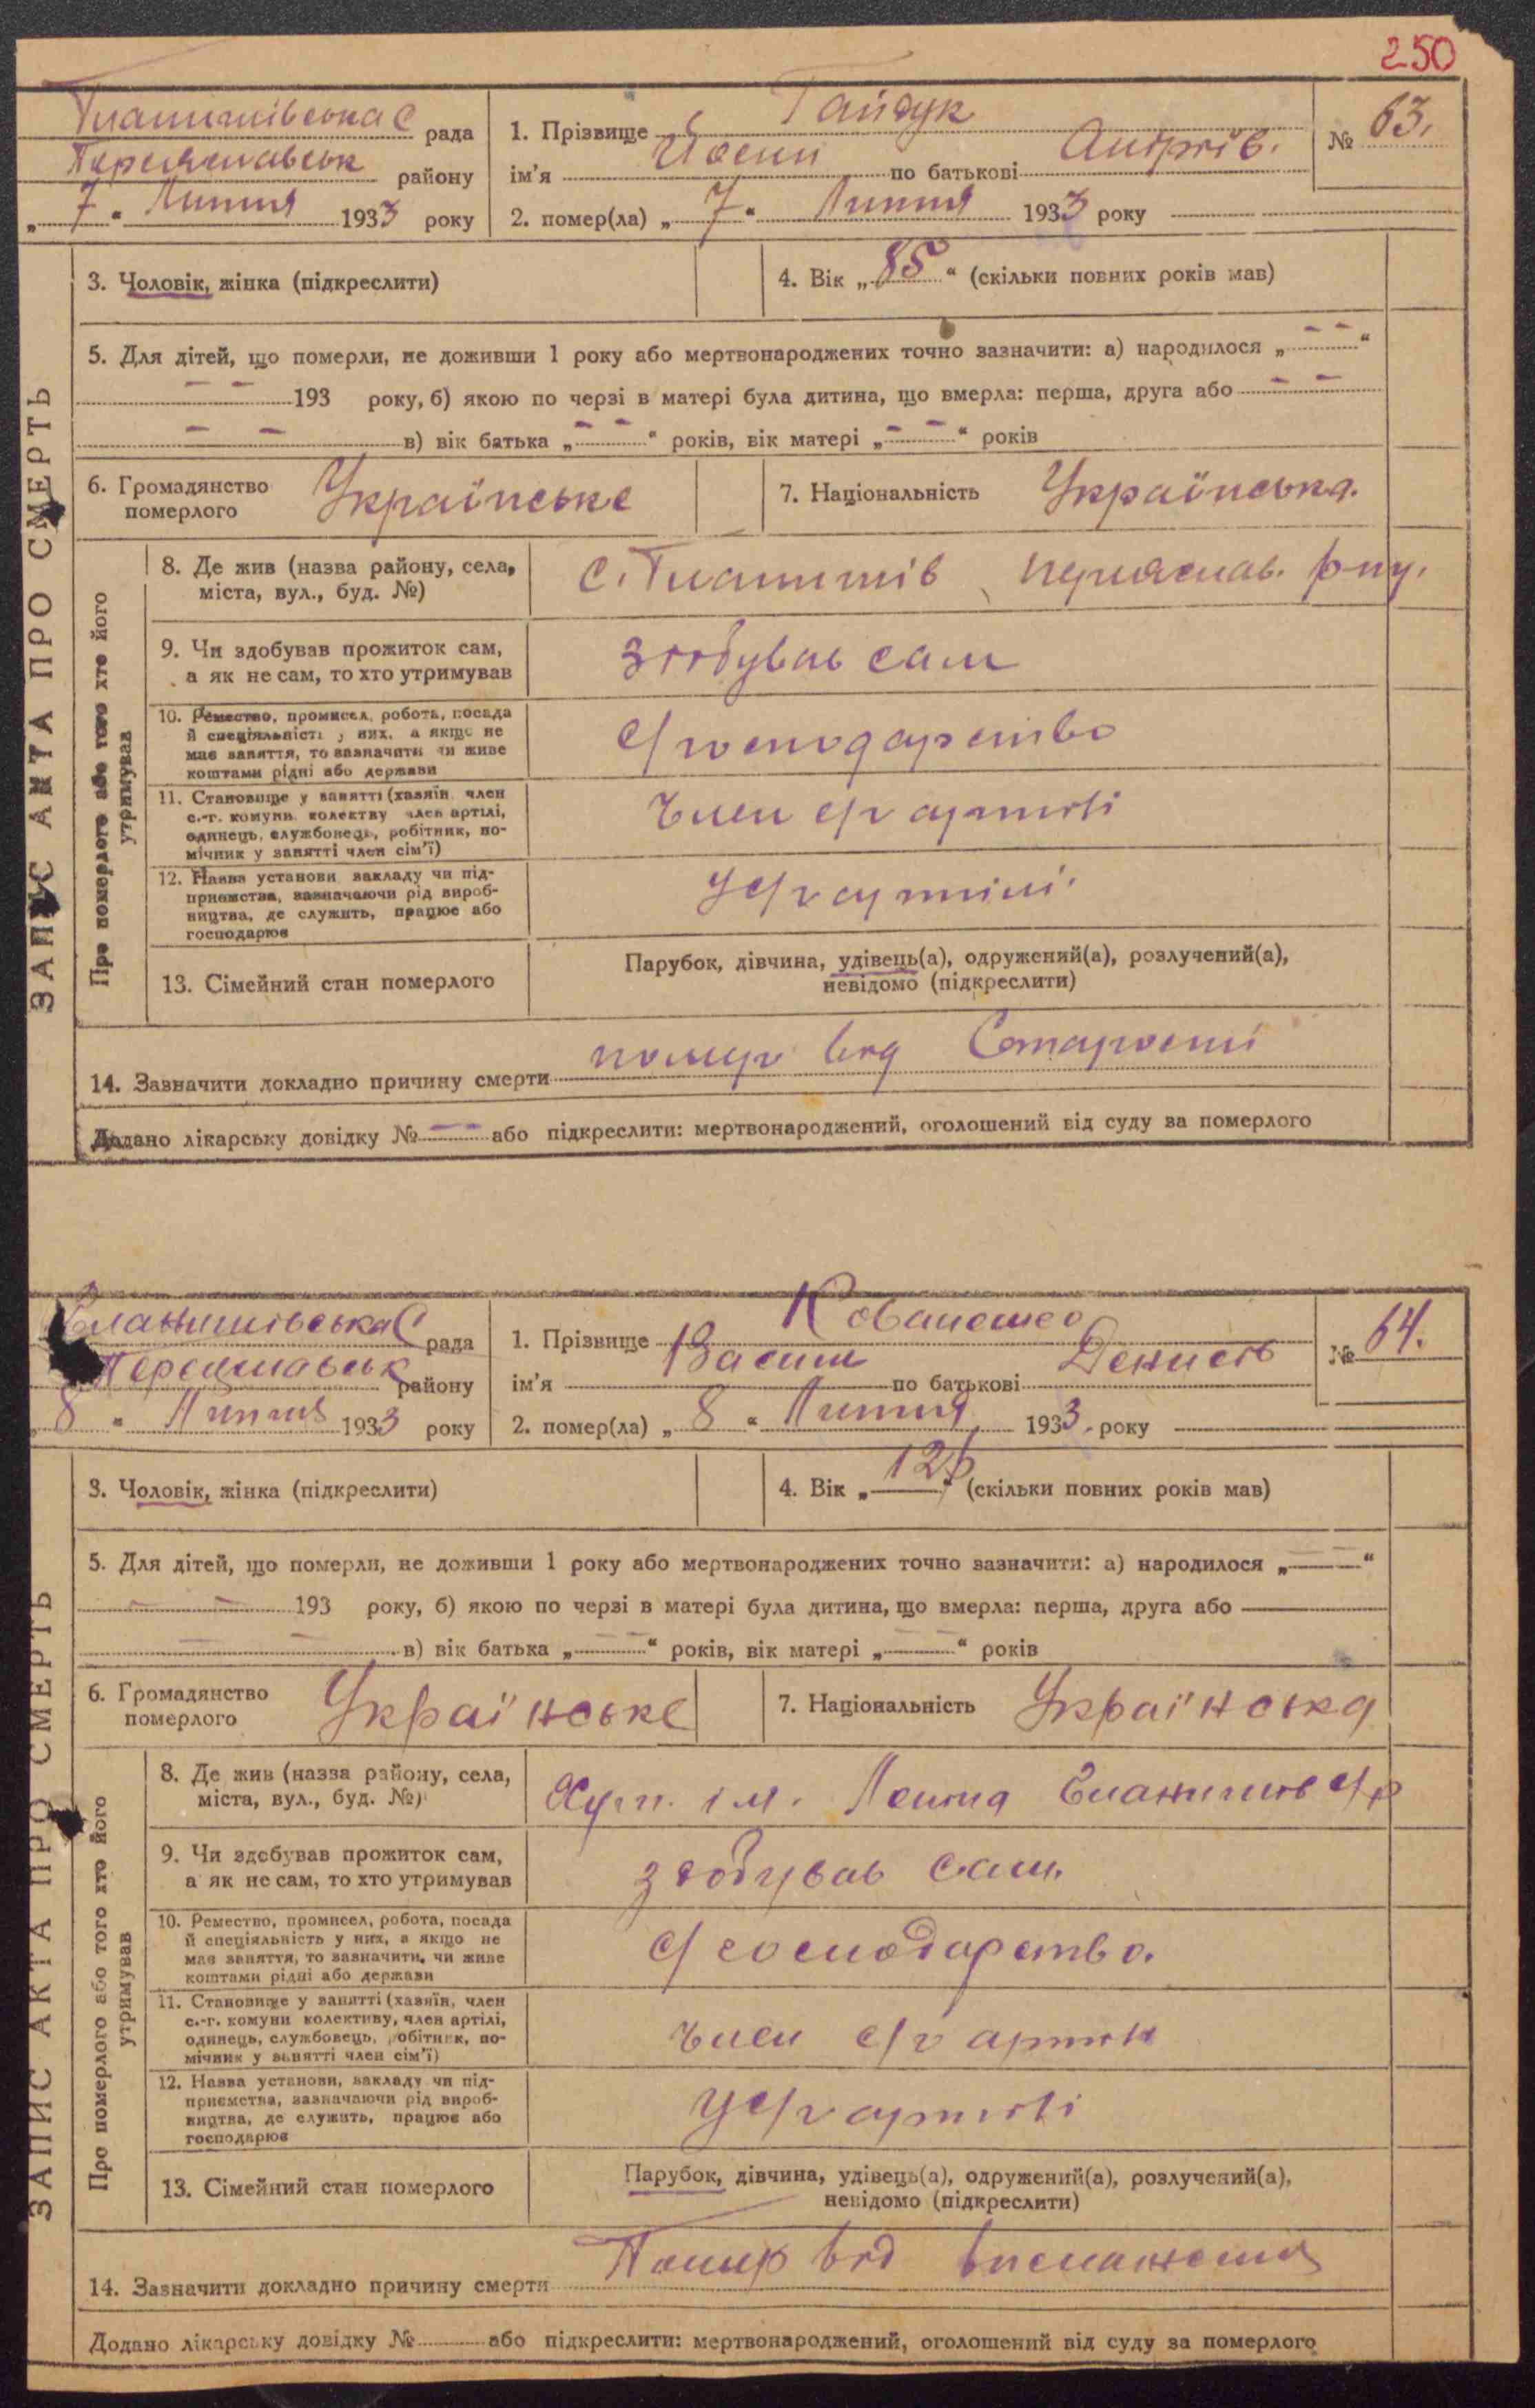 250
рада
1. Прізвище Гайдук
№ 63.
району
ім'я Йосип по батькові
„ 7 “ Липня 1933 року
2. помер(ла) „ 7 “ Липня 1933 року
3. Чоловік, жінка (підкреслити)
4. Вік „ 85 “ (скільки повних років мав)
5. Для дітей, що померли, не доживши 1 року або мертвонароджених точно зазначити: а) народилося „ — — “
— — 193 року, б) якою по черзі в матері була дитина, що вмерла: перша, друга або — —
— — в) вік батька „ — — “ років, вік матері „ — — “ років
6. Громадянство
померлого
Українське
7. Національність Українська.
ЗАПИС АКТА ПРО СМЕРТЬ
Про померлого або того хто його
утримував
8. Де жив (назва району, села,
міста, вул., буд. №)
9. Чи здобував прожиток сам,
а як не сам, то хто утримував
здобував сам
10. Ремество, промисел, робота, посада
й спеціяльність у них, а якщо не
має заняття, то зазначити чи живе
коштами рідні або держави
с/господарство
11. Становище у занятті (хазяїн, член
с.-г. комуни колективу член артілі,
одинець, службовець, робітник, по-
мічник у занятті член сім'ї)
Член с/г артілі
12. Назва установи, закладу чи під-
приємства, зазначаючи рід вироб-
ництва, де служить, працює або
господарює
У с/г артілі
13. Сімейний стан померлого
Парубок, дівчина, удівець(а), одружений(а), розлучений(а),
невідомо (підкреслити)
14. Зазначити докладно причину смерти помер від Старости
Додано лікарську довідку № — — або підкреслити: мертвонароджений, оголошений від суду за померлого
рада
1. Прізвище
№ 64.
району
ім'я Василь по батькові Денисов
8 “ Липня 1933 року
2. помер(ла) „ 8 “ Липня 1933. року
3. Чоловік, жінка (підкреслити)
4. Вік „ 12 р “ (скільки повних років мав)
5. Для дітей, що померли, не доживши 1 року або мертвонароджених точно зазначити: а) народилося „ — — “
— — 193 року, б) якою по черзі в матері була дитина, що вмерла: перша, друга або
— — в) вік батька „ — — “ років, вік матері „ — — “ років
6. Громадянство
померлого
Українське
7. Національність Українська
ЗАПИС АКТА ПРО СМЕРТЬ
Про померлого або того хто його
утримував
8. Де жив (назва району, села,
міста, вул., буд. №)
Хут. ім.
9. Чи здобував прожиток сам,
а як не сам, то хто утримував
здобував сам.
10. Ремество, промисел, робота, посада
й спеціяльність у них, а якщо не
має заняття, то зазначити, чи живе
коштами рідні або держави
с/господарство.
11. Становище у занятті (хазяїн, член
с.-г. комуни колективу, член артілі,
одинець, службовець, робітник, по-
мічник у занятті член сім'ї)
член с/г
12. Назва установи, закладу чи під-
приємства, зазначаючи рід вироб-
ництва, де служить, працює або
господарює
У с/г артілі
13. Сімейний стан померлого
Парубок, дівчина, удівець(а), одружений(а), розлучений(а),
невідомо (підкреслити)
14. Зазначити докладно причину смерти Помер від виснаження
Додано лікарську довідку № або підкреслити: мертвонароджений, оголошений від суду за померлого